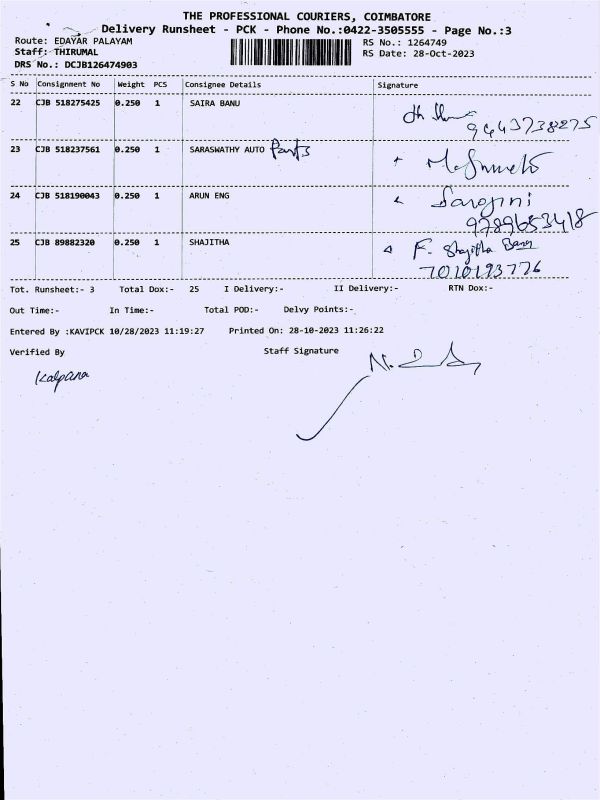 THE PROFESSIONAL COURIERS, COIMBATORE
Delivery Runsheet - PCK - Phone No.:0422-3505555 - Page No.:3
Route: EDAYAR PALAYAM RS No.: 1264749
Staff: THIRUMAL RS Date: 28-Oct-2023
DRS No.: DCJB126474903
S No Consignment No Weight PCS Consignee Details Signature
22 CJB 518275425 0.250 1 SAIRA BANU
9443738275
23 CJB 518237561 0.250 1 SARASWATHY AUTO Parts
24 CJB 518190043 0.250 1 ARUN ENG Sarojini
9789653418
25 CJB 89882320 0.250 1 SHAJITHA F. Shajitha Banu
7010193776
Tot. Runsheet:- 3 Total Dox:- 25 I Delivery:- II Delivery:- RTN Dox:-
Out Time:- In Time:- Total POD:- Delvy Points:-
Entered By :KAVIPCK 10/28/2023 11:19:27 Printed On: 28-10-2023 11:26:22
Verified By Staff Signature
Kalpana